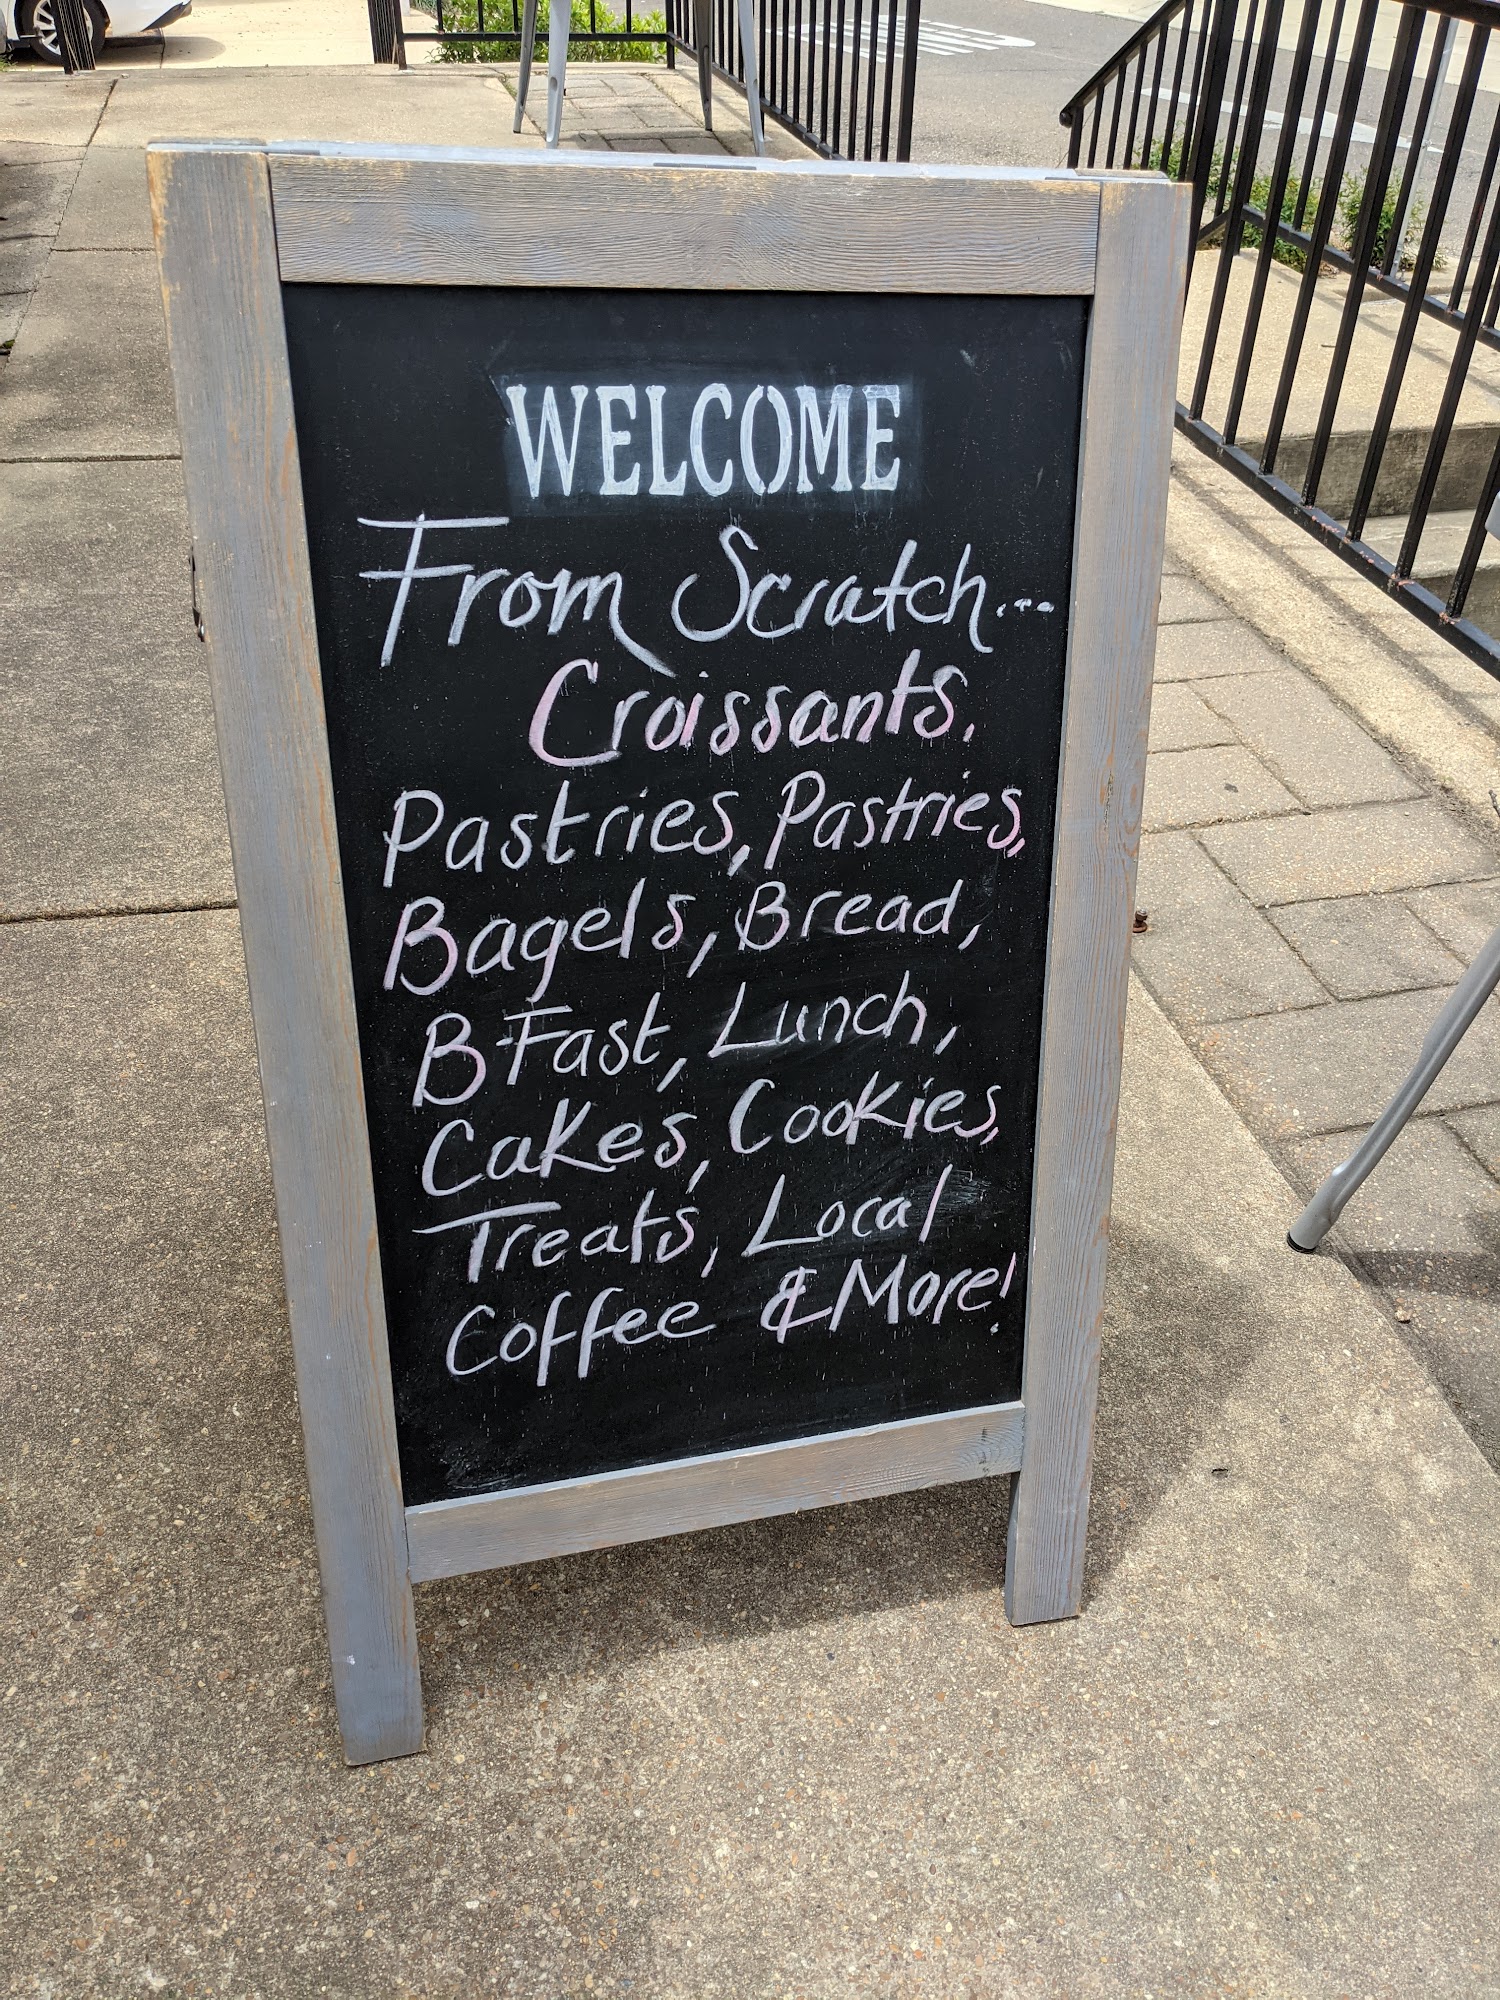 WELCOME
From Scratch...
Croissants,
Pastries, Pastries,
Bagels, Bread,
B-Fast, Lunch,
Cakes, Cookies,
Treats, Local
Coffee & More!